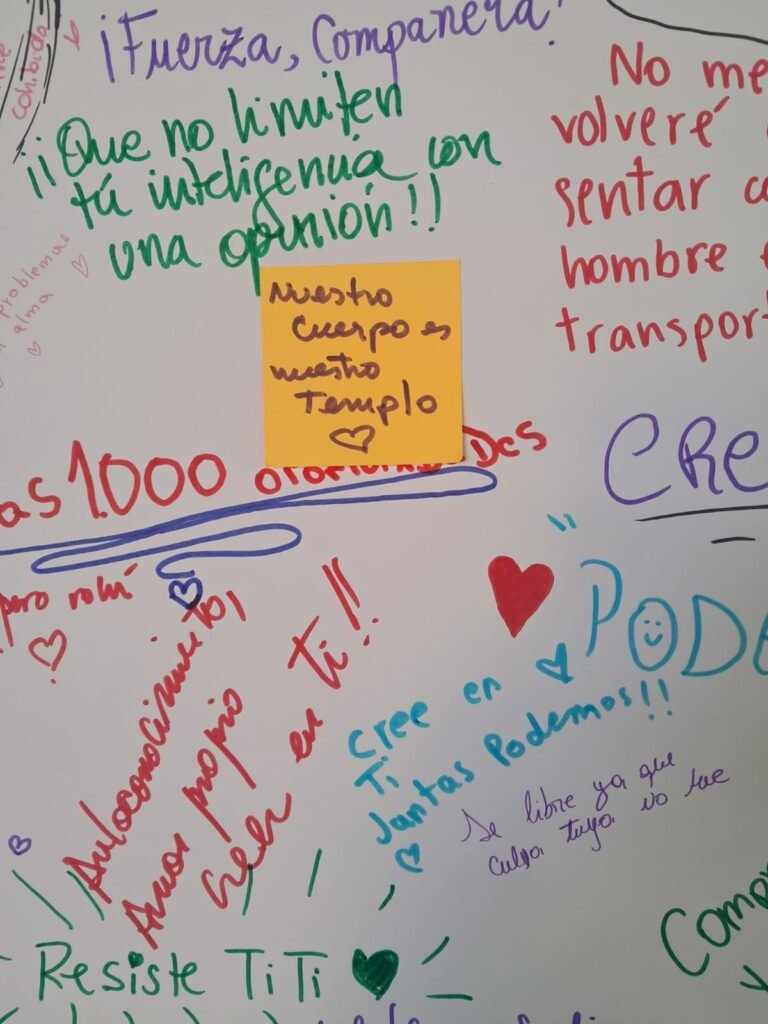 cohibida
¡Fuerza, Compañera!
¡¡Que no limiten
tú inteligencia con
una opinión!!
No me
volveré
sentar co
hombre e
transport
problemas
alma
Nuestro
Cuerpo es
nuestro
Templo
as 1.000 des
CRE
pero
Autoconocimiento,
Amor propio
Creer en ti!!
"PODE
Cree en
Ti
Juntas Podemos!!
Se libre ya que
culpa tuya no fue
Resiste TiTi
Comp